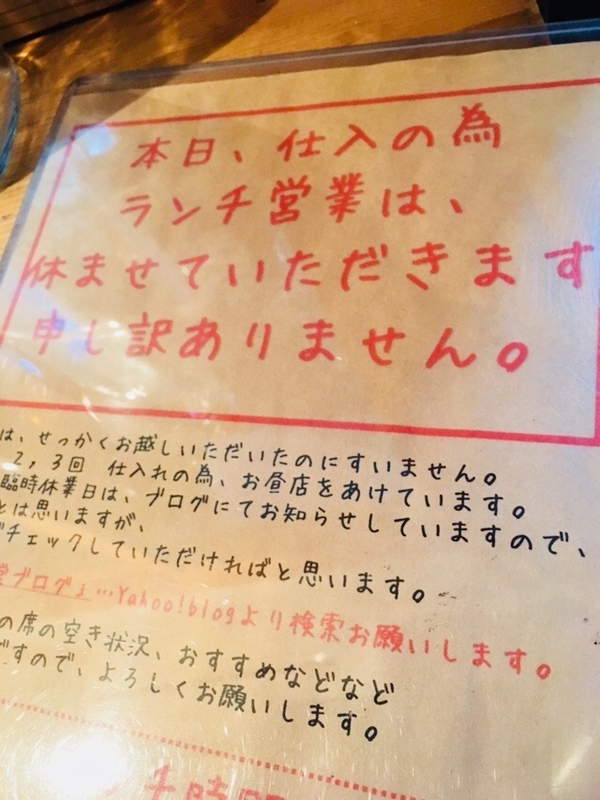 本日、仕入の為
ランチ営業は、
休ませていただきます
申し訳ありません。
は、せっかくお越しいただいたのにすいません。
2,3回 仕入れの為、お昼店をあけています。
臨時休業日は、ブログにてお知らせしていますので、
とは思いますが、
チェックしていただければと思います。
ブログ」…Yahoo!blogより検索お願いします。
の席の空き状況、おすすめなどなど
ですので、よろしくお願いします。